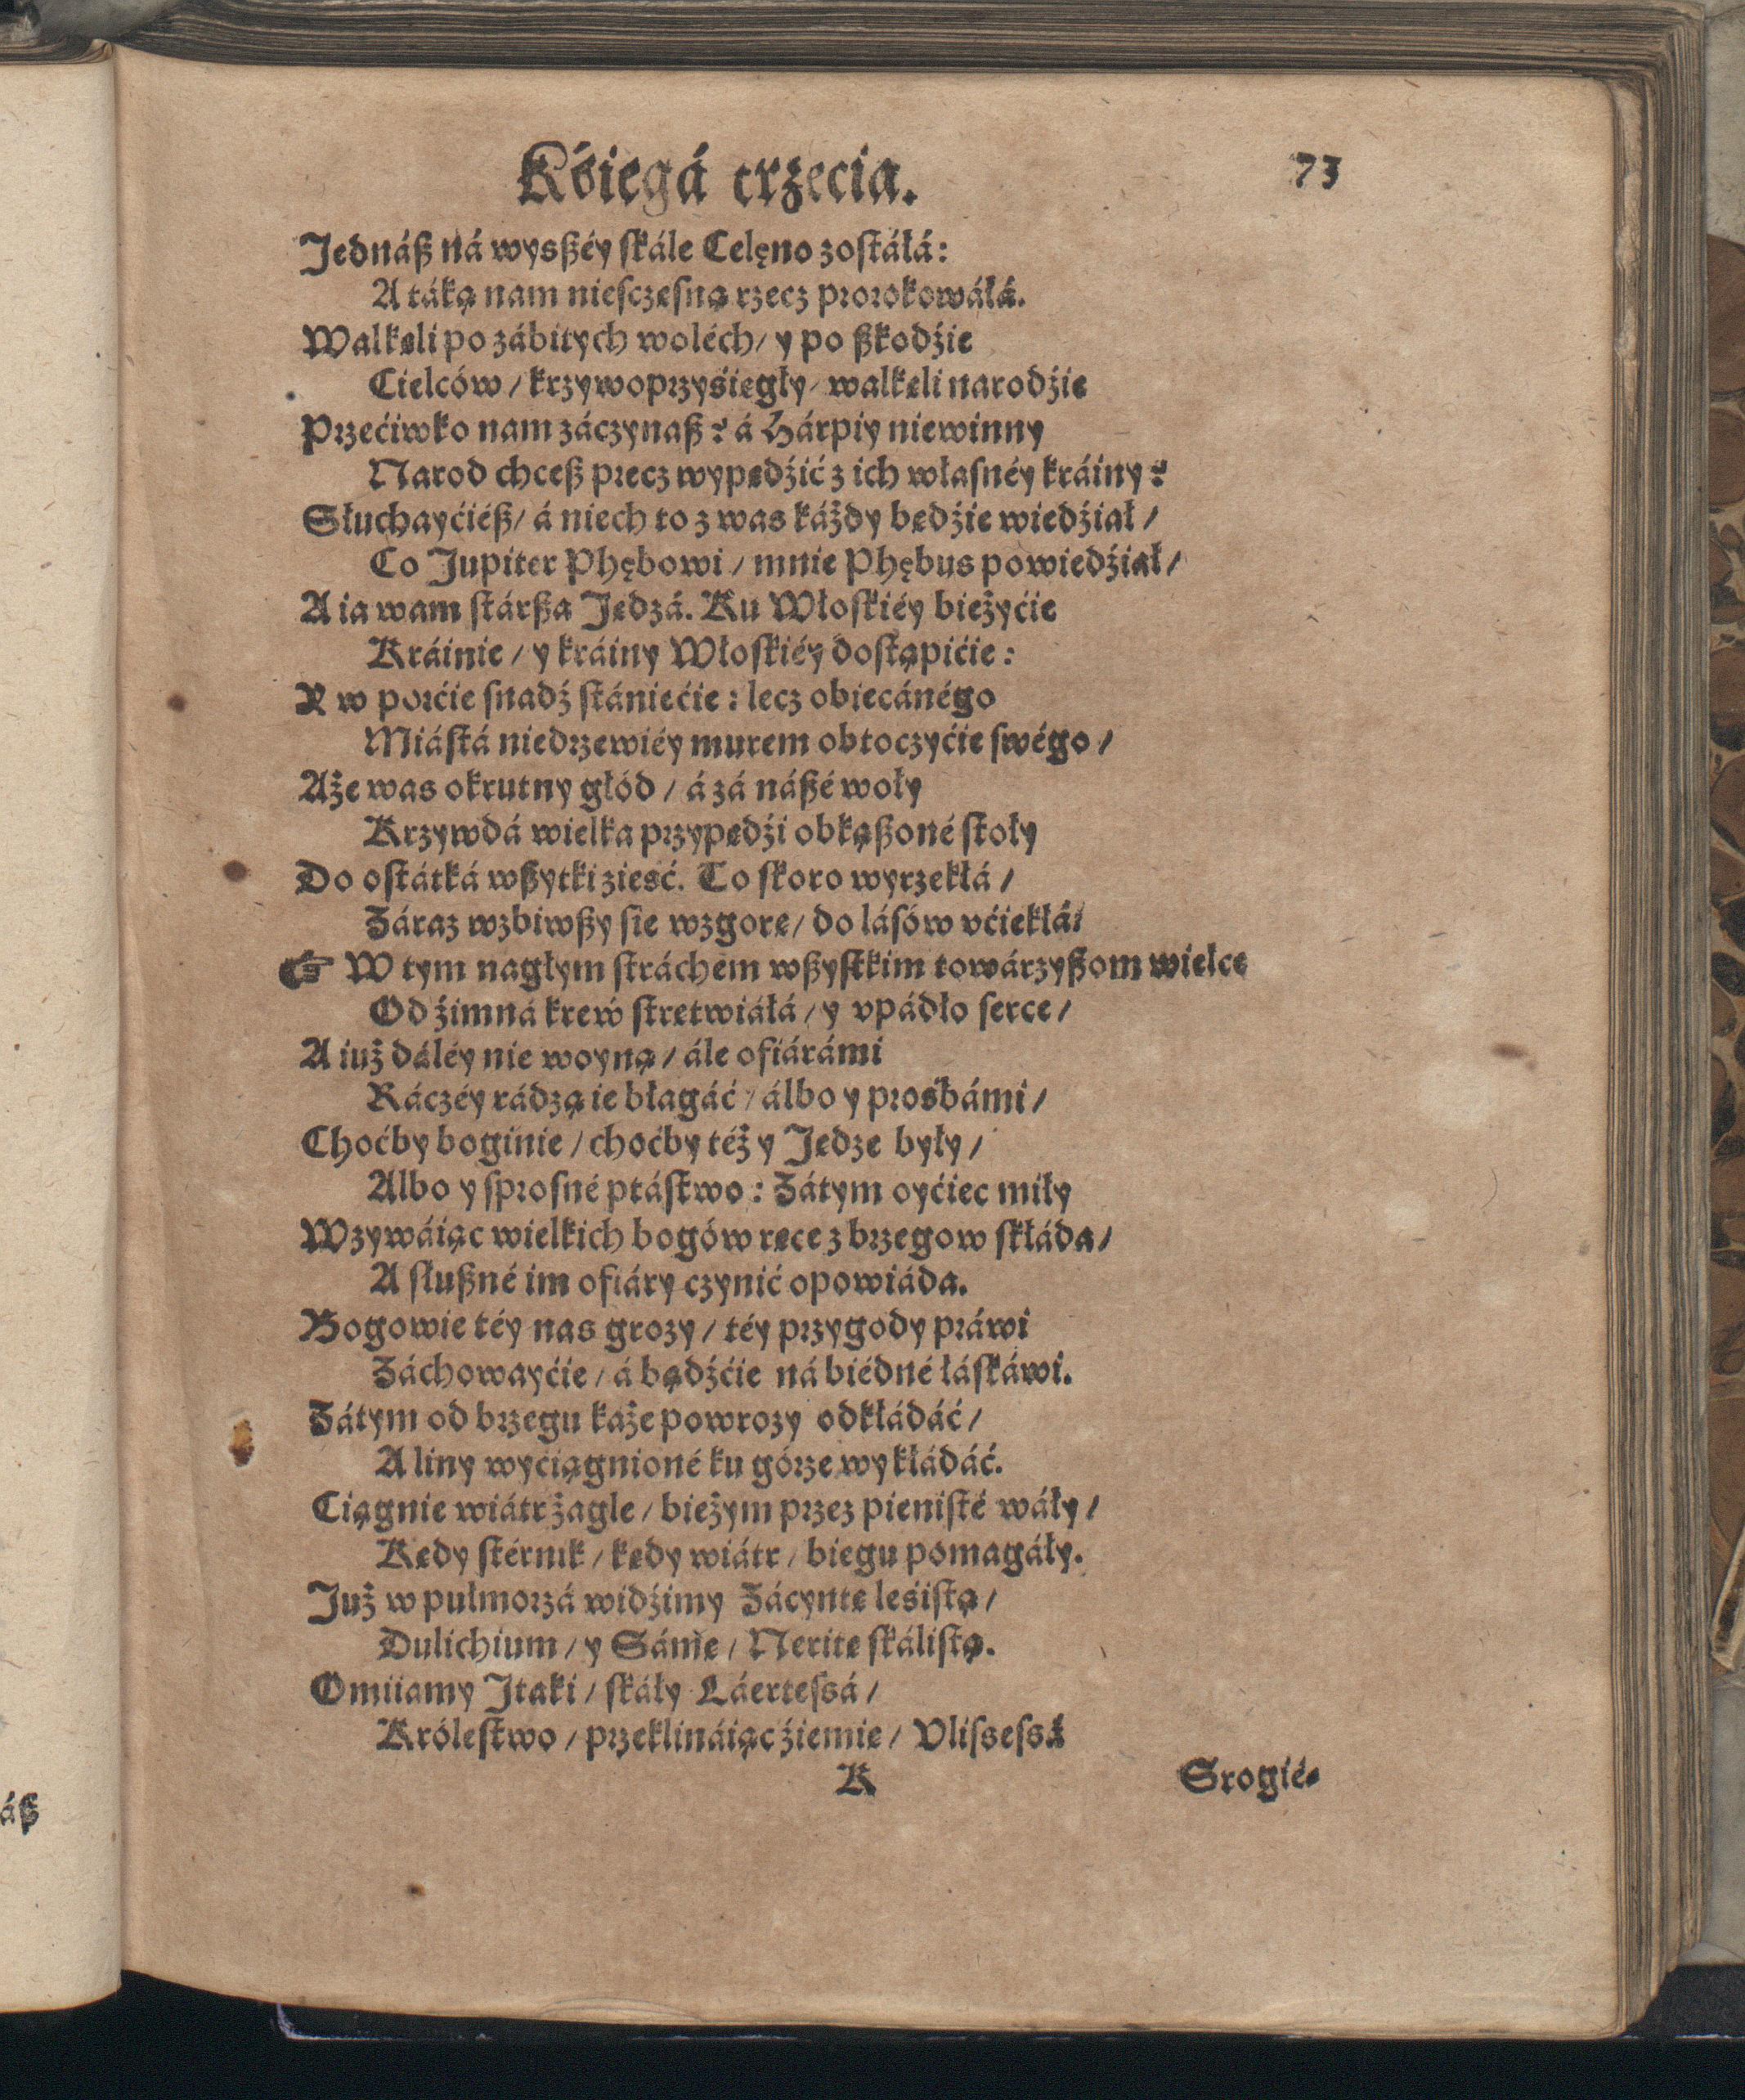 Kśięgá trzecia. 73
Jednáß ná wysßéy skále Celęno zostáłá:
A táką nam niesczęsną rzecz prorokowáłá.
Walkęli po zábitych woléch/ y po ßkodźie
Cielców/ krzywoprzyśięgły/ walkęli narodźie
Przećiwko nam záczynaß? á Hárpiy niewinny
Narod chceß precz wypędźić z ich własnéy kráiny?
Słuchayćiéß/ á niech to z was káżdy będźie wiedźiał/
Co Jupiter Phębowi/ mnie Phębus powiedźiał/
A ia wam stárßa Jędzá. Ku Włoskiéy bieżyćie
Kráinie/ y kráiny Włoskiéy dostąpićie:
Y w porćie snadź stániećie: lecz obiecánégo
Miástá niedrzewiéy murem obtoczyćie swégo/
Aże was okrutny głód/ á zá náßé woły
Krzywdá wielka przypędźi obkąßoné stoły
Do ostátká wßytki ziesć. To skoro wyrzekłá/
Záraz wzbiwßy się wzgorę/ do lásów vćiekłá/
☞ W tym nagłym stráchem wßystkim towárzyßom wielce
Od źimná kreẃ strętwiáłá/ y vpádło serce/
A iuż dáléy nie woyną/ ále ofiárámi
Ráczéy rádzą ie błagáć/ álbo y prośbámi/
Choćby boginie/ choćby téż y Jędze były/
Albo y sprosné ptástwo: Zátym oyćiec miły
Wzywáiąc wielkich bogów ręce z brzegow składa/
A słußné im ofiáry czynić opowiáda.
Bogowie téy nas grozy/ téy przygody práwi
Záchowayćie/ á bądźćie ná biédné łáskáwi.
Zátym od brzegu każe powrozy odkłádáć/
A liny wyciągnioné ku górze wykłádáć.
Ciągnie wiátr żagle/ bieżym przez pienisté wáły/
Kędy stérnik/ kędy wiátr/ biegu pomagáły.
Już w pułmorzá widźimy Zácyntę leśistą/
Dulichium/ y Sámę/ Neritę skálistą.
Omiiamy Jtaki/ skáły Láertessá/
Królestwo/ przeklináiąc źiemię/ Vlissessá
K Srogié-
áß